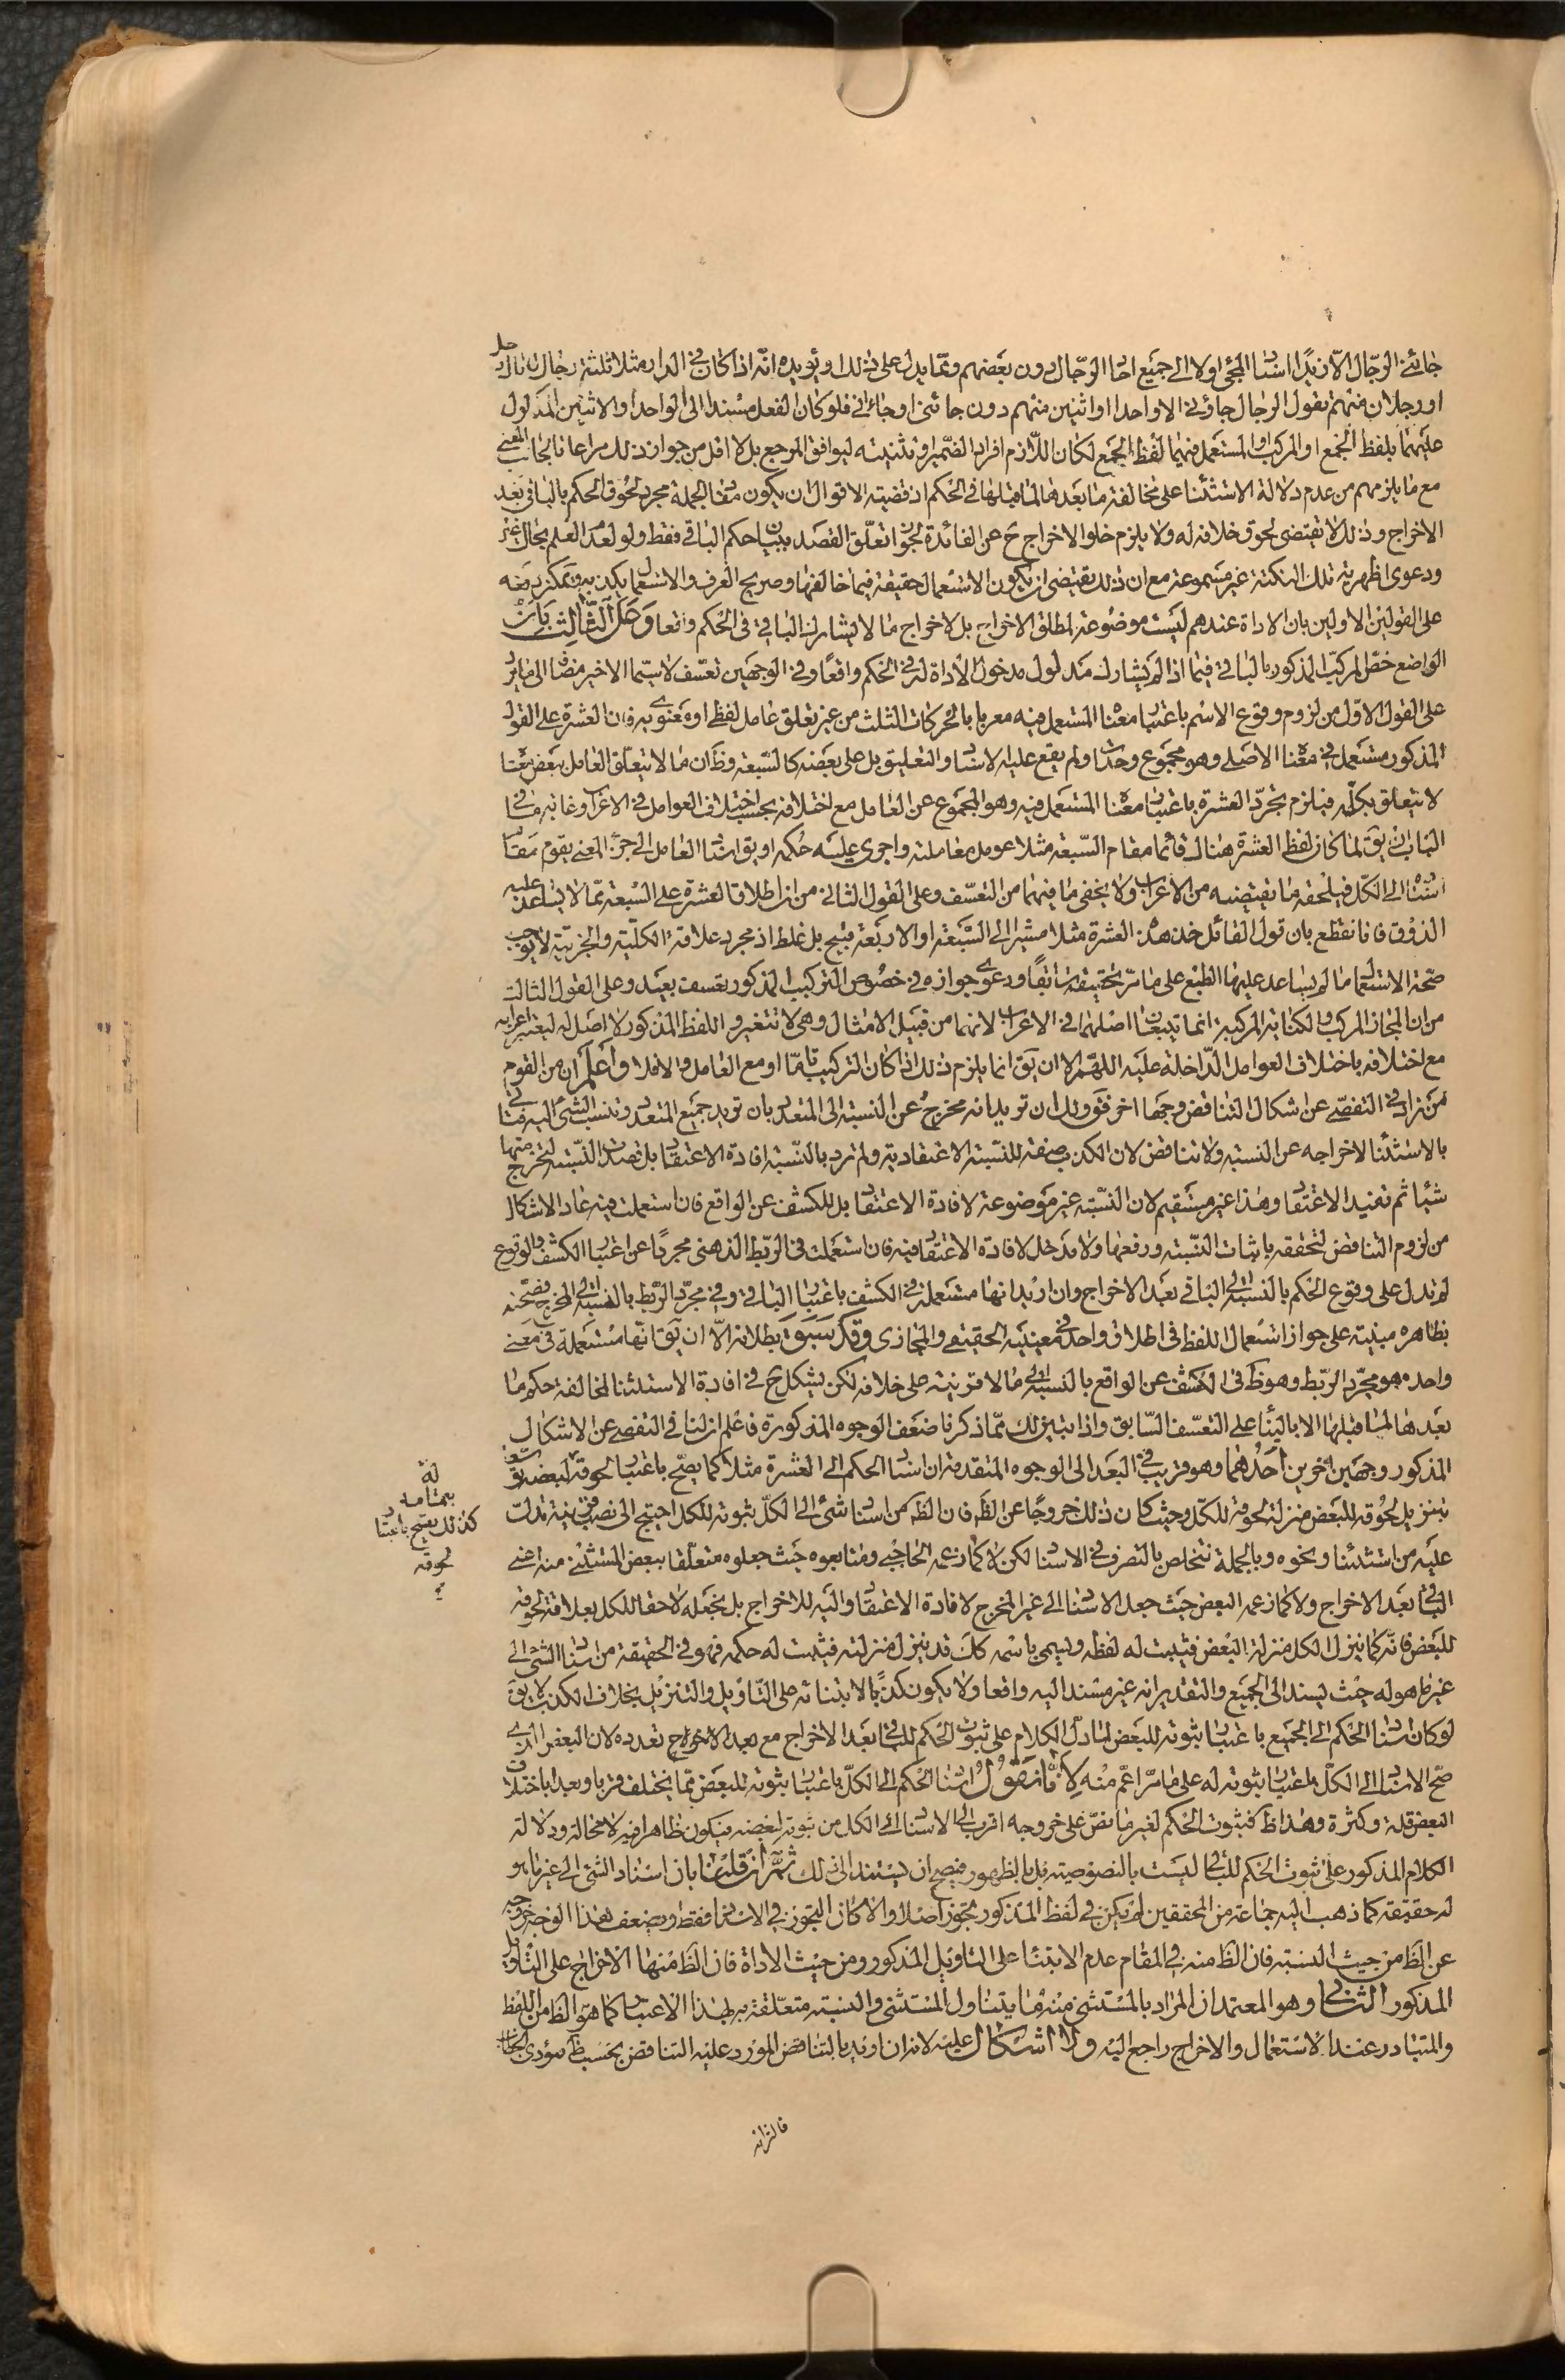 جائني الرّجال الّا زيدًا اسناد المجئ اولا الى جميع احاد الرّجال دون بعضهم وممّا يدل على ذلك او يؤيده انّه اذا كان في الدار مثلا ثلثة رجال فاراد رجل
او رجلان منهم يقول الرجال جاؤني الا واحدا او اثنين منهم دون جائني او جائاني فلو كان الفعل مسندا الى الواحد او الاثنين المدلول
عليهما بلفظ الجمع او المركب او المستعمل فيهما لفظ الجمع لكان اللّازم افراد الضّمير او تثنيته ليوافق المرجع بل لا اقل من جواز ذلك مراعاة لجانب المعنى
مع ما يلزمهم من عدم دلالة الاستثناء على مخالفة ما بعدها لما قبلها في الحكم اذ قضية الاقوال ان يكون مفاد الجملة مجرد لحوق الحكم بالباقي بعد
الاخراج وذلك لا يقتضى لحوق خلافه له ولا يلزم خلو الاخراج ح عن الفائدة لجواز تعلّق القصد ببيان حكم الباقي فقط ولو لعدم العلم بحال غيره
ودعوى اظهرية تلك النكتة غير مسموعة مع ان ذلك يقتضى ان يكون الاستعمال حقيقة فيما خالفها وصريح العرف والاستعمال يكذبه ويمكن دفعه
على القولين الاولين بان الاداة عندهم ليست موضوعة لمطلق الاخراج بل لاخراج ما لا يشارك الباقي في الحكم واقعا وَعَلَى الثّالِث بِأن
الواضع خصّ المركب المذكور بالباقي فيما اذا لم يشارك مدلول مدخول الاداة له في الحكم واقعًا وفي الوجهين تعسّف لا سيّما الاخير مضافا الى ما يرد
على القول الاوّل من لزوم وقوع الاسم باعتبار معناه المستعمل فيه معربا بالحركات الثلث من غير تعلق عامل لفظى او معنوى به فان العشرة على القول
المذكور مستعمل في معناه الاصلى وهو مجموع وحدات ولم يقع عليه الاسناد والتعليق بل على بعضه كالسّبعة وظ ان ما لا يتعلّق العامل ببعض معناه
لا يتعلق بكلّه فيلزم تجرّد العشرة باعتبار معناه المستعمل فيه وهو المجموع عن العامل مع اختلافه بحسب اختلاف العوامل في الاعراب وغاية ما في
الباب ان يق لما كان لفظ العشرة هناك قائما مقام السّبعة مثلا عومل معاملته واجرى عليه حكمه او يق اسناد العامل الى جزء المعنى يقوم مقام
اسناده الى الكلّ فيلحقه ما يقتضيه من الاعراب ولا يخفى ما فيهما من التعسّف وعلى القول الثانى من ان اطلاق العشرة على السّبعة ممّا لا يساعد عليه
الذوق فانا نقطع بان قول القائل خذ هذه العشرة مثلا مشيرا الى السّبعة او الاربعة قبيح بل غلط اذ مجرد علاقة الكلّية والجزئيّة لا يوجب
صحّة الاستعمال ما لم يساعد عليها الطبع على ما مرّ تحقيقه سابقًا ودعوى جوازه في خصوص التركيب المذكور تعسف بعيد وعلى القول الثالث
من ان المجاز المركب والكناية المركبة انما يتبعان اصلهما في الاعراب لانهما من قبيل الامثال وهى لا تتغير و اللفظ المذكور لا اصل له ليعتبر اعرابه
مع اختلافه باختلاف العوامل الدّاخلة عليه اللهمّ الا ان يق انما يلزم ذلك اذا كان التركيب تامّا او مع العامل والا فلا وَاعْلَم ان من القوم
من زاد في التفصّى عن اشكال التناقض وجها اخر فقو لك ان تريد انه مخرج عن النسبة الى المتعدد بان تريد جميع المتعدد وتنسب الشئ اليه فتاتى
بالاستثناء لاخراجه عن النسبة ولا تناقض لان الكذب صفة للنّسبة الاعتقادية ولم ترد بالنّسبة افادة الاعتقاد بل قصدت النّسبة لتخرج منها
شيئا ثم تفيد الاعتقاد وهذا غير مستقيم لان النّسبة غير موضوعة لافادة الاعتقاد بل للكشف عن الواقع فان استعملت فيه عاد الاشكال
من لزوم التناقض لتحققه باثبات النّسبة ورفعها ولا مدخل لافادة الاعتقاد فيه فان استعملت في الرّبط الذهنى مجردًا عن اعتبار الكشف والوقوع
لم تدل على وقوع الحكم بالنسبة الى الباقي بعد الاخراج وان اريد انها مستعملة في الكشف باعتبار الباقي وفي مجرّد الرّبط بالنسبة الى المخرج فصحّته
بظاهره مبنية على جواز استعمال اللفظ في اطلاق واحد في معنييه الحقيقى والمجازى وَقَد سَبَقَ بطلانه الّا ان يق انّها مستعملة في معنى
واحد هو مجرّد الرّبط وهو ظ في الكشف عن الواقع بالنّسبة الى ما لا قرينة على خلافه لكن يشكل ح في افادة الاستثناء لمخالفة حكم ما
بعدها لما قبلها الا بالبناء على التعسّف السّابق واذا تبيّن لك ممّا ذكرنا ضعف الوجوه المذكورة فاعلم ان لنا في التفصى عن الاشكال
المذكور وجهين اخرين أَحَدُهُما وهو قريب في البعد الى الوجوه المتقدمة ان اسناد الحكم الى العشرة مثلا كما يصحّ باعتبار لحوقه لبعضه
بتنزيل لحوقه للبعض منزلة لحوقه للكلّ وحيث كان ذلك خروجًا عن الظّ فان الظّ من اسناد شئ الى الكلّ ثبوته للكل احتيج الى نصب قرينة تدلّ
عليه من استثناء ونحوه وبالجملة نتخلص بالتصرف في الاسناد لكن لا كما زعمه الحاجبى ومتابعوه حيث جعلوه متعلّقا ببعض المستثنى منه اعنى
الباقي بعد الاخراج ولا كما زعمه البعض حيث جعل الاسناد الى غير المخرج لافادة الاعتقاد واليه للاخراج بل نجعله لاحقا للكل بعلاقة لحوقه
للبعض فانّه كما ينزل الكل منزلة البعض فيثبت له لفظه ويسمى باسمه كك قد ينزل منزلته فيثبت له حكمه فهو في الحقيقة من اسناد الشئ الى
غير ما هو له حيث يسند الى الجميع والتقدير انه غير مسند اليه واقعا ولا يكون كذبًا لابتنائه على التّاويل والتنزيل بخلاف الكذب لا يق
لو كان اسناد الحكم الى الجميع باعتبار ثبوته للبعض لما دلّ الكلام على ثبوت الحكم للباقي بعد الاخراج مع تعدده لان البعض الذى
صحّ الاسناد الى الكلّ باعتبار ثبوته له على ما مرّ اعمّ منه لِأَنّا نَقُولُ اسناد الحكم الى الكلّ باعتبار ثبوته للبعض ممّا يختلف قربا وبعدا باختلاف
البعض قلة وكثرة وهذا ظ فثبوت الحكم لغير ما نصّ على خروجه اقرب الى الاسناد الى الكل من ثبوته لبعضه فيكون ظاهرا فيه لا محالة ودلالة
الكلام المذكور على ثبوت الحكم للباقي ليست بالنصوصية بل بالظهور فيصح ان يستند الى ذلك ثُمَّ اِنْ قُلْنا بان اسناد الشئ الى غير ما هو
له حقيقة كما ذهب اليه جماعة من المحققين لم يكن في لفظ المذكور تجوز اصلا والا كان التجوز في الاسناد فقط ويضعف هذا الوجه خروجه
عن الظّ من حيث النسبة فان الظّ منه في المقام عدم الابتناء على التاويل المذكور ومن حيث الاداة فان الظّ منها الاخراج على التّاويل
المذكور الثانى وهو المعتمد ان المراد بالمستثنى منه ما يتناول المستثنى والنسبة متعلّقة به بهذا الاعتبار كما هو الظّ من اللفظ
والمتبادر عند الاستعمال والاخراج راجع اليه ولا اشكال عليه لانه ان اريد بالتناقض المورد عليه التناقض بحسب ظ مؤدى الخطاب
له
بتمامه
كذلك يصح باعتبار
لحوقه
فالتزامه